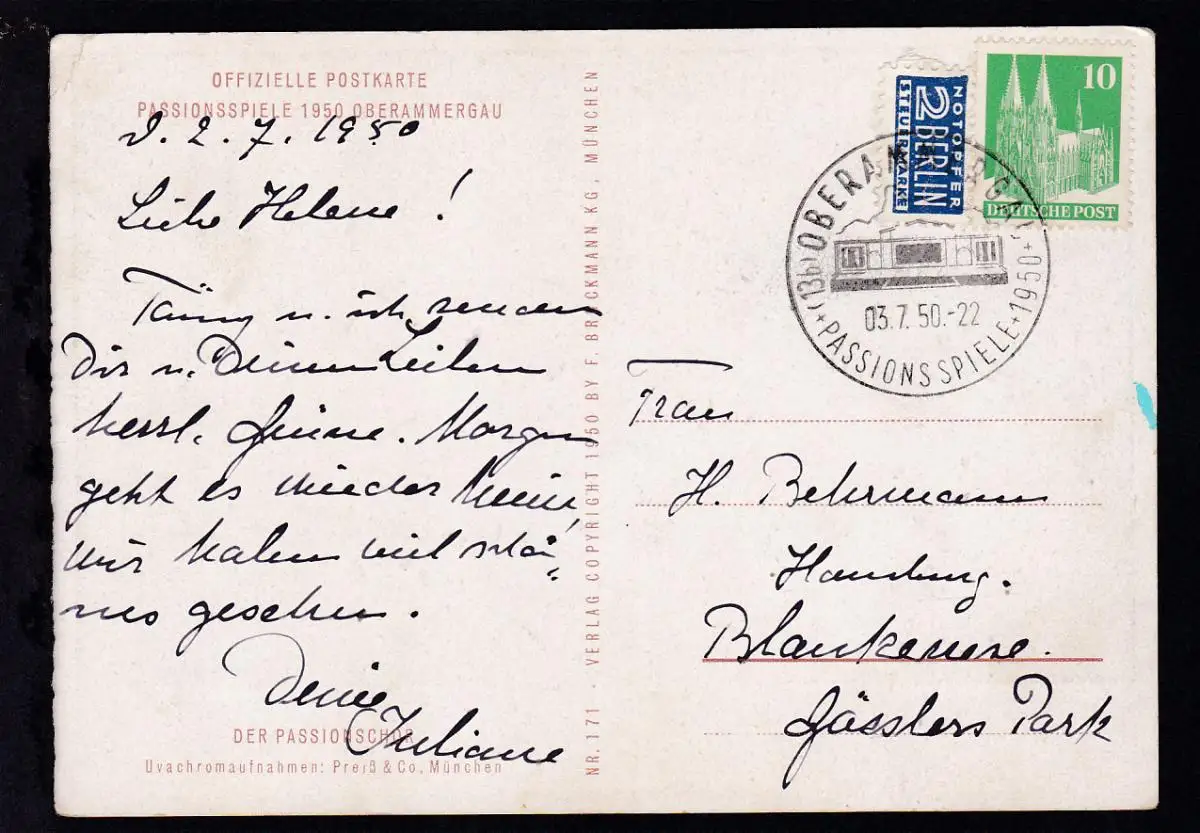 OFFIZIELLE POSTKARTE
PASSIONSSPIELE 1950 OBERAMMERGAU
d. 2. 7. 1950
Liebe Helene!
u. ich senden
Dir u. Deinen Lieben
herzl. Grüsse. Morgen
geht es wieder heim,
wir haben viel schö-
nes gesehen.
Deine
Juliane
DER PASSIONSCHOR
Uvachromaufnahmen: Preiß & Co, München
NR. 171 · VERLAG COPYRIGHT 1950 BY F. BRUCKMANN KG, MÜNCHEN
NOTOPFER
2 BERLIN
STEUERMARKE
10
DEUTSCHE POST
(13b) OBERAMMERGAU
03.7.50.-22
+ PASSIONSSPIELE + 1950 +
Frau
H. Behrmann
Hamburg.
Blankenese.
Gösslers Park